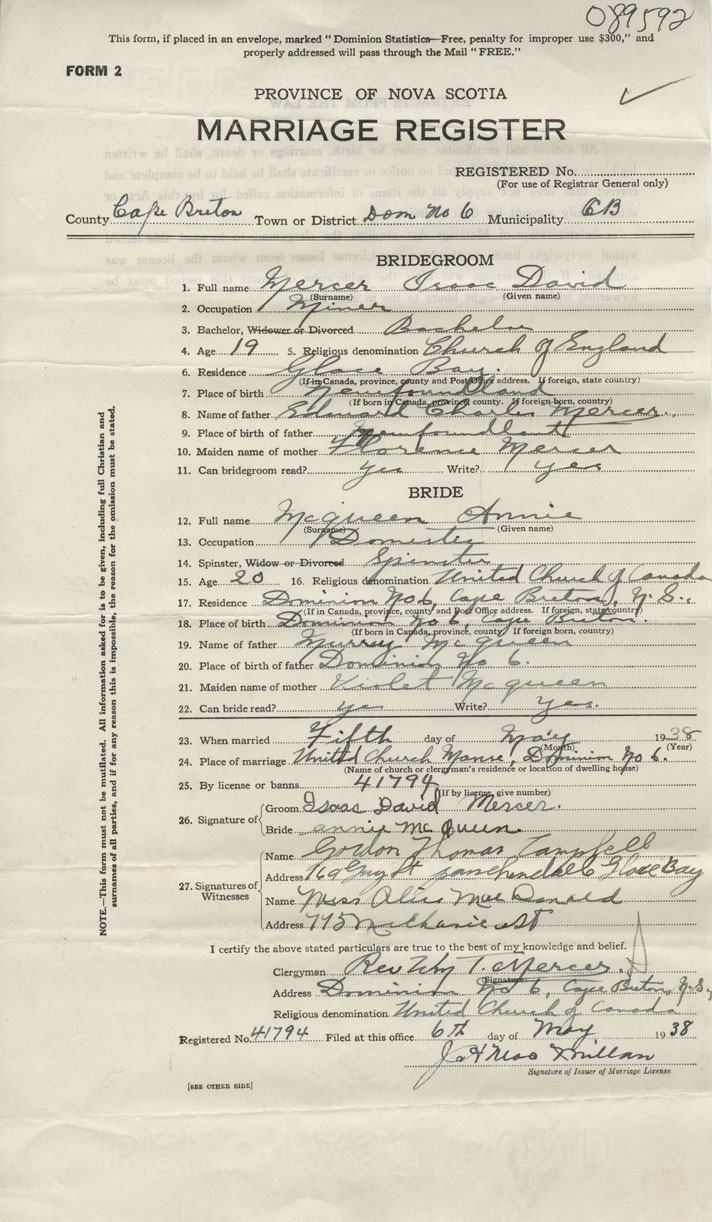 089592
This form, if placed in an envelope, marked "Dominion Statistics—Free, penalty for improper use $300," and
properly addressed will pass through the Mail "FREE."
FORM 2
PROVINCE OF NOVA SCOTIA
MARRIAGE REGISTER
REGISTERED No.
(For use of Registrar General only)
County Cape Breton Town or District Dom No 6 Municipality CB
BRIDEGROOM
1. Full name Mercer Isaac David
(Surname) (Given name)
2. Occupation Miner
3. Bachelor, Widower or Divorced Bachelor
4. Age 19 5. Religious denomination Church of England
6. Residence Glace Bay.
(If in Canada, province, county and Post Office address. If foreign, state country)
7. Place of birth Newfoundland
(If born in Canada, province, county. If foreign born, country)
8. Name of father Edward Charles Mercer.
9. Place of birth of father Newfoundland
10. Maiden name of mother Florence Mercer
11. Can bridegroom read? yes Write? yes
BRIDE
12. Full name McQueen Annie
(Surname) (Given name)
13. Occupation Domestic
14. Spinster, Widow or Divorced Spinster
15. Age 20 16. Religious denomination United Church of Canada
17. Residence Dominion No 6, Cape Breton, N.S.
(If in Canada, province, county and Post Office address. If foreign, state country)
18. Place of birth Dominion No 6, Cape Breton.
(If born in Canada, province, county. If foreign born, country)
19. Name of father Murray McQueen
20. Place of birth of father Dominion No 6.
21. Maiden name of mother Violet Mcqueen
22. Can bride read? yes Write? Yes.
23. When married Fifth day of May 1938
(Month) (Year)
24. Place of marriage United Church Manse, Dominion No 6.
(Name of church or clergyman's residence or location of dwelling house)
25. By license or banns. 41794
(If by license, give number)
26. Signature of
Groom Isaac David Mercer.
Bride annie McQueen.
27. Signatures of Witnesses
Name Gordon Thomas Campbell
Address 169 Glace Bay
Name Miss Allie MacDonald
Address 775 St
I certify the above stated particulars are true to the best of my knowledge and belief.
Clergyman Rev Wm T. Mercer.
(Signature)
Address Dominion No 6, Cape Breton, N.S.
Religious denomination United Church of Canada
Registered No. 41794 Filed at this office 6th day of May 1938
Signature of Issuer of Marriage License.
[SEE OTHER SIDE]
NOTE.—This form must not be mutilated. All information asked for is to be given, including full Christian and
surnames of all parties, and if for any reason this is impossible, the reason for the omission must be stated.